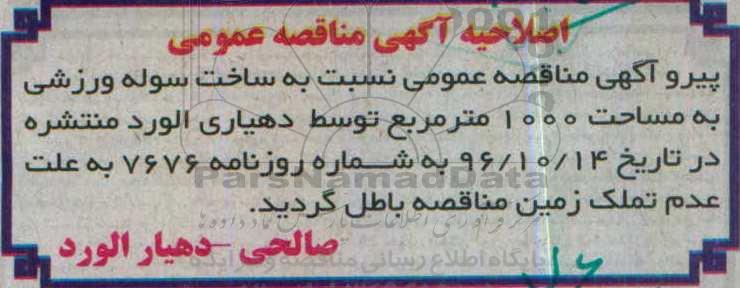 اصلاحیه آگهی مناقصه عمومی
پیرو آگهی مناقصه عمومی نسبت به ساخت سوله ورزشی
به مساحت ۱۰۰۰ مترمربع توسط دهیاری الورد منتشره
در تاریخ ۹۶/۱۰/۱۴ به شماره روزنامه ۷۶۷۶ به علت
ParsNamadData
عدم تملک زمین مناقصه باطل گردید.
صالحی -دهیار الورد
پایگاه اطلاع رسانی مناقصه و مزایده